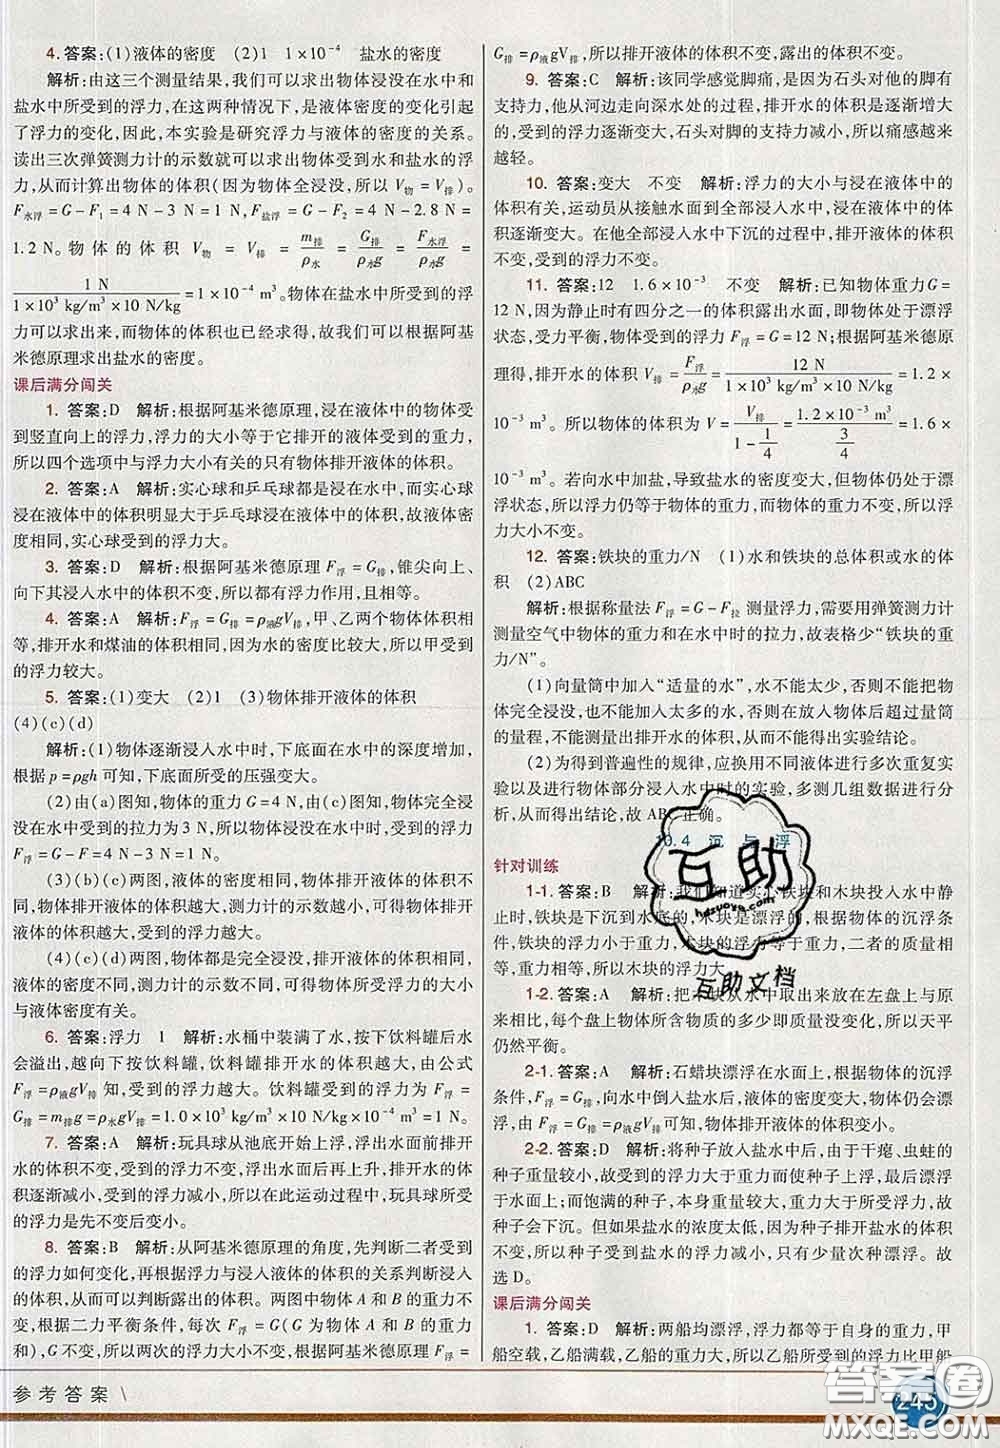 4. 答案:(1)液体的密度 (2)1 1×10⁻⁴ 盐水的密度
解析:由这三个测量结果,我们可以求出物体浸没在水中和
盐水中所受到的浮力,在这两种情况下,是液体密度的变化引起
了浮力的变化,因此,本实验是研究浮力与液体的密度的关系。
读出三次弹簧测力计的示数就可以求出物体受到水和盐水的浮
力,从而计算出物体的体积(因为物体全浸没,所以 V物 = V排)。
F水浮 = G - F₁ = 4 N - 3 N = 1 N, F盐浮 = G - F₂ = 4 N - 2.8 N =
1.2 N。物体的体积 V物 = V排 = m排/ρ水 = G排/ρ水g = F水浮/ρ水g =
1 N/(1×10³ kg/m³×10 N/kg) = 1×10⁻⁴ m³。物体在盐水中所受到的浮
力可以求出来,而物体的体积也已经求得,故我们可以根据阿基
米德原理求出盐水的密度。
课后满分闯关
1. 答案:D 解析:根据阿基米德原理,浸在液体中的物体受
到竖直向上的浮力,浮力的大小等于它排开的液体受到的重力,
所以四个选项中与浮力大小有关的只有物体排开液体的体积。
2. 答案:A 解析:实心球和乒乓球都是浸在水中,而实心球
浸在液体中的体积明显大于乒乓球浸在液体中的体积,故液体密
度相同,实心球受到的浮力大。
3. 答案:D 解析:根据阿基米德原理 F浮 = G排,锥尖向上、
向下其浸入水中的体积不变,所以都有浮力作用,且相等。
4. 答案:A 解析:F浮 = G排 = ρ液gV排,甲、乙两个物体体积相
等,排开水和煤油的体积相同,因为水的密度比较大,所以甲受到
的浮力较大。
5. 答案:(1)变大 (2)1 (3)物体排开液体的体积
(4)(c)(d)
解析:(1)物体逐渐浸入水中时,下底面在水中的深度增加,
根据 p = ρgh 可知,下底面所受的压强变大。
(2)由(a)图知,物体的重力 G = 4 N,由(c)图知,物体完全浸
没在水中受到的拉力为 3 N,所以物体浸没在水中时,受到的浮力
F浮 = G - F = 4 N - 3 N = 1 N。
(3)(b)(c)两图,液体的密度相同,物体排开液体的体积不
同,体积越大,测力计的示数越小,可得物体排开液体的体积越
大,受到的浮力越大。
(4)(c)(d)两图,物体都是完全浸没,排开液体的体积相同,
液体的密度不同,测力计的示数不同,可得物体所受浮力的大小
与液体密度有关。
6. 答案:浮力 1 解析:水桶中装满了水,按下饮料罐后水
会溢出,越向下按饮料罐,饮料罐排开水的体积越大,由公式
F浮 = ρ液gV排 知,受到的浮力越大。饮料罐所受到的浮力 F浮 =
G排 = m排g = ρ水gV排 = 1.0×10³ kg/m³×10 N/kg×10⁻⁴ m³ = 1 N。
7. 答案:A 解析:玩具球从池底开始上浮,浮出水面前排开
水的体积不变,受到的浮力不变,浮出水面后再上升,排开水的体
积逐渐减小,受到的浮力逐渐减小,所以在此运动过程中,玩具球所受
的浮力是先不变后变小。
8. 答案:B 解析:从阿基米德原理的角度,先判断二者受到
的浮力如何变化,再根据浮力与浸入液体的体积的关系判断浸入
的体积,从而可以判断露出的体积。两图中物体 A 和 B 的重力
不变,根据二力平衡条件,每次 F浮 = G(G 为物体 A 和 B 的重力
和),G 不变,所以两次的浮力大小不变,根据阿基米德原理 F浮 =
G排 = ρ液gV排,所以排开液体的体积不变,露出的体积不变。
9. 答案:C 解析:该同学感觉脚痛,是因为石头对他的脚有
支持力,他从河边走向深水处的过程,排开水的体积是逐渐增大
的,受到的浮力逐渐变大,石头对脚的支持力减小,所以痛感越来
越轻。
10. 答案:变大 不变 解析:浮力的大小与浸在液体中的
体积有关,运动员从接触水面到全部浸入水中,浸在液体中的体
积逐渐变大。在他全部浸入水中下沉的过程中,排开液体的体积
不变,受到的浮力不变。
11. 答案:12 1.6×10⁻³ 不变 解析:已知物体重力G =
12 N,因为静止时有四分之一的体积露出水面,即物体处于漂浮
状态,受力平衡,物体受到的浮力 F浮 = G = 12 N;根据阿基米德原
理得,排开水的体积 V排 = F浮/ρ水g = 12 N/(1×10³ kg/m³×10 N/kg) = 1.2×
10⁻³ m³。所以物体的体积为 V = V排/(1 - 1/4) = 1.2×10⁻³ m³/(3/4) = 1.6×
10⁻³ m³。若向水中加盐,导致盐水的密度变大,但物体仍处于漂
浮状态,所以浮力仍等于物体的重力,而物体的重力不变,所以浮
力大小不变。
12. 答案:铁块的重力/N (1)水和铁块的总体积或水的体
积 (2)ABC
解析:根据称量法 F浮 = G - F拉 测量浮力,需要用弹簧测力计
测量空气中物体的重力和在水中时的拉力,故表格少“铁块的重
力/N”。
(1)向量筒中加入“适量的水”,水不能太少,否则不能把物
体完全浸没,也不能加入太多的水,否则在放入物体后超过量筒
的量程,不能测量出排开水的体积,从而不能得出实验结论。
(2)为得到普遍性的规律,应换用不同液体进行多次重复实
验以及进行物体部分浸入水中时的实验,多测几组数据进行分
析,从而得出结论,故 ABC 正确。
10.4 沉与浮
针对训练
1-1. 答案:B 解析:我们知道实心铁块和木块投入水中静
止时,铁块是下沉到水底的,木块是漂浮的,根据物体的沉浮条
件,铁块的浮力小于重力,木块的浮力等于重力,二者的质量相
等,重力相等,所以木块的浮力大。
1-2. 答案:A 解析:把木块从水中取出来放在左盘上与原
来相比,每个盘上物体所含物质的多少即质量没变化,所以天平
仍然平衡。
2-1. 答案:A 解析:石蜡块浮在水面上,根据物体的沉浮
条件,F浮 = G物,向水中倒入盐水后,液体的密度变大,物体仍会漂
浮,由 F浮 = G排 = ρ液gV排可知,物体排开液体的体积变小。
2-2. 答案:D 解析:将种子放入盐水中后,由于干瘪、虫蛀的
种子重量较小,故受到的浮力大于重力而使种子上浮,最后漂浮
于水面上;而饱满的种子,本身重量较大,重力大于所受浮力,故
种子会下沉。但如果盐水的浓度太低,因为种子排开盐水的体积
不变,所以种子受到盐水的浮力减小,只能使少量次种漂浮。故
选 D。
课后满分闯关
1. 答案:D 解析:两船均漂浮,浮力都等于自身的重力,甲
船空载,乙船满载,乙船的重力大,所以乙船所受的浮力比甲船
互助
hdzuoye.com
互助文档
参考答案 \
245
答案圈
MXQE.COM